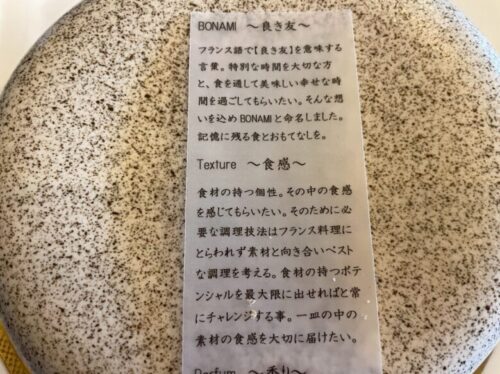 BONAMI ～良き友～
フランス語で【良き友】を意味する
言葉。特別な時間を大切な方
と、食を通して美味しい幸せな時
間を過ごしてもらいたい。そんな想
いを込め BONAMIと命名しました。
記憶に残る食とおもてなしを。
Texture ～食感～
食材の持つ個性。その中の食感
を感じてもらいたい。そのために必
要な調理技法はフランス料理に
とらわれず素材と向き合いベスト
な調理を考える。食材の持つポテ
ンシャルを最大限に出せればと常
にチャレンジする事。一皿の中の
素材の食感を大切に届けたい。
Parfum ～香り～